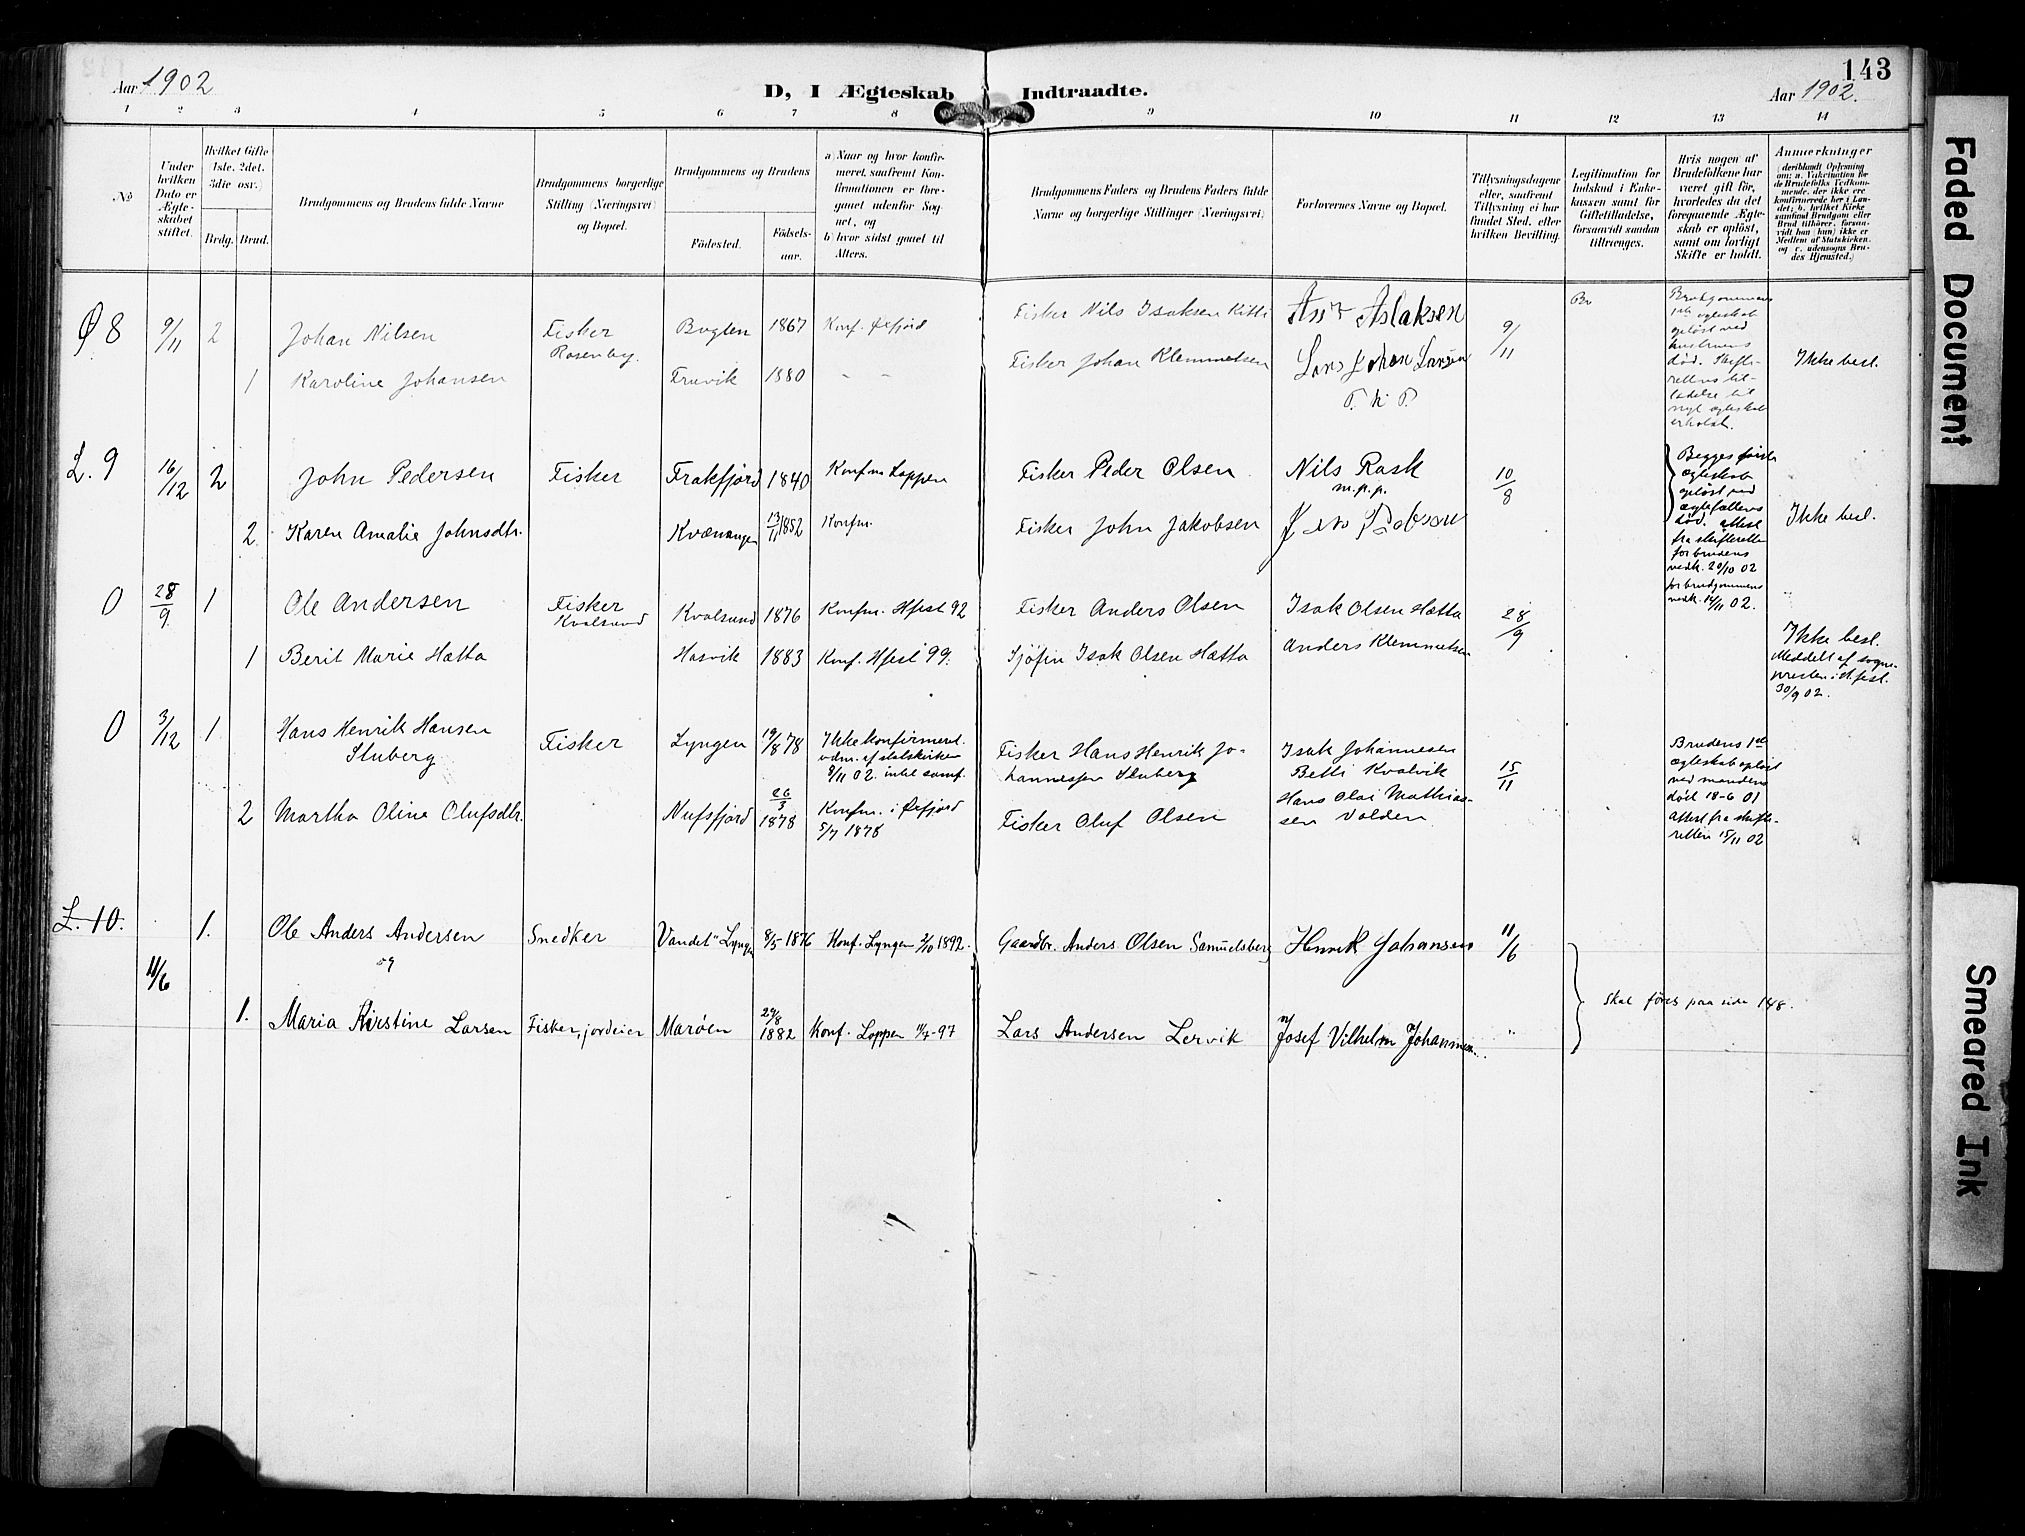 143
Aar 1902
D, I Ægteskab Indtraadte.
Aar 1902.
1 2 3 4 5 6 7 8 9 10 11 12 13 14
No
Under hvilken Dato er Ægteskabet stiftet.
Hvilket Gifte (1ste, 2det, 3die osv.)
Brdg. Brud.
Brudgommens og Brudens fulde Navne
Brudgommens borgerlige Stilling (Næringsvei) og Bopæl.
Brudgommens og Brudens
Födested.
Födselsaar.
a) Naar og hvor konfirmeret, saafremt Konfirmationen er foregaaet udenfor Sognet, og
b) hvor sidst gaaet til Alters.
Brudgommens Faders og Brudens Faders fulde Navne og borgerlige Stillinger (Næringsvei)
Forlovernes Navne og Bopæl.
Tillysningsdagene eller, saafremt Tillysning ei har fundet Sted, efter hvilken Bevilling.
Legitimation for Indskud i Enkekassen samt for Giftetilladelse, forsaavidt saadan tiltrænges.
Hvis nogen af Brudefolkene har været gift för, hvorledes da det foregaaende Ægteskab er oplöst, samt om lovligt Skifte er holdt.
Anmærkninger
(deriblandt Oplysning om: a. Vakcination for de Brudefolks Vedkommende, der ikke ere konfirmerede her i Landet; b. hvilket Kirkesamfund Brudgom eller Brud tilhörer, forsaavidt han (hun) ikke er Medlem af Statskirken, og c. udensogns Brudes Hjemsted.)
Ø 8 9/11 2 Johan Nilsen Fisker Buglen 1867 Konf. Øxfjord Fisker Nils Isaksen Kitti Aslaksen 9/11
Rosenberg.
1 Karoline Johansen Fruvik 1880 – – Fisker Johan Klemmetsen Lars Johan Larsen Ikke besl.
Brudgommens 1ste ægteskab opløst ved hustruens død. Skifterettens tilladelse til nyt ægteskab erholdt.
L. 9 16/12 2 John Pedersen Fisker Frakfjord 1840 Konfm Loppen Fisker Peder Olsen Nils Rask 10/8
m.p.p.
2. Karen Amalie Johnsdtr. Kvænangen 13/11 1852 Konfm. Fisker John Jakobsen Ikke besl.
Begges første ægteskab opløst ved ægtefællens død. attest fra skifteretten for brudens vedk. 20/10 02
for brudgommens vedk. 14/11 02.
0 28/9. 1 Ole Andersen Fisker Kvalsund 1876 Konfm. Hfest 92 Fisker Anders Olsen Isak Olsen Hætta 28/9
Kvalsund
1 Berit Marie Hætta Hasvik 1883 Konf. Hfest 99. Sjøfin Isak Olsen Hætta Anders Klemmetsen
Ikke besl.
Meddelt af sognepresten i H.fest. 30/9 02.
0 3/12 1. Hans Henrik Hansen Fisker Lyngen 19/8 78 Ikke konfirmeret. Fisker Hans Henrik Jo-
Stuberg udm. af statskirken
9/11 02. intet samf. hannessen Stuberg
Isak Johannesen
Betti Kvalvik 15/11
2 Martha Oline Olufsdtr. Nufsfjord 26/3 1878 Konfm. i Øxfjord Fisker Oluf Olsen Hans Olai Mathias-
5/7 1878 sen Volden
Brudens 1ste ægteskab opløst ved mandens død 18-6 01
Attest fra skifteretten 15/11 02
L. 10. 11/6 1. Ole Anders Andersen Snedker "Vandet" Lyngen 8/5 1876 Konf. Lyngen 2/10 1892. Gaardbr. Anders Olsen Samuelsberg Henrik Johansen 11/6
og
1. Maria Kirstine Larsen Fisker, jordeier Marøen 29/8 1882 Konf. Loppen 11/7-97 Lars Andersen Lervik Josef Vilhelm Johannesen "
Skal føres paa side 148.
Faded Document
Smeared Ink